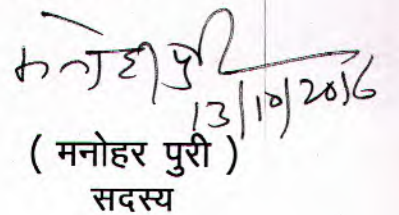 मनोहर पुरी
13/10/2016
( मनोहर पुरी )
सदस्य